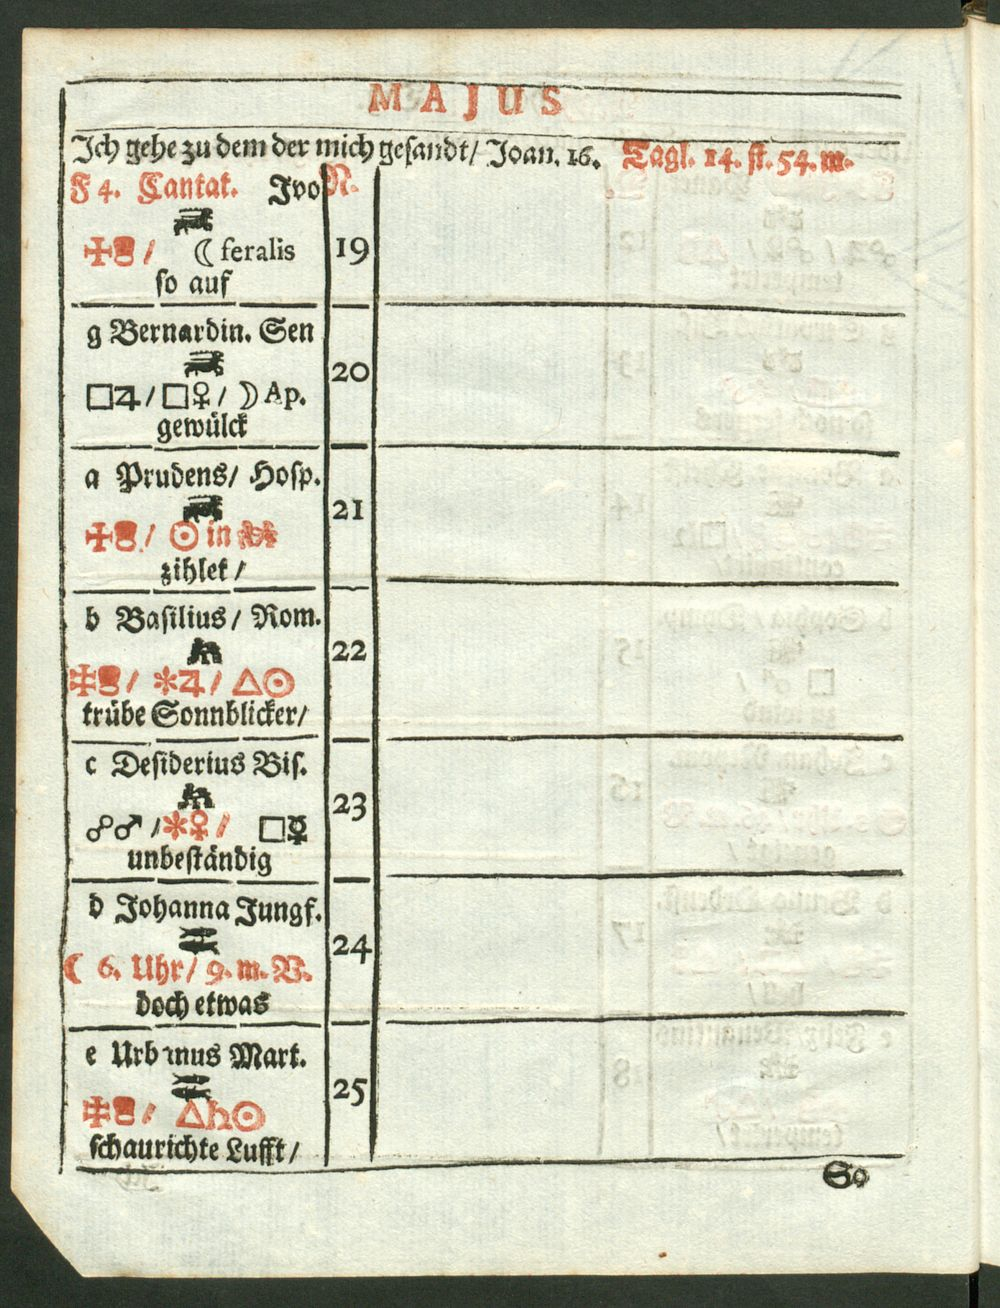 MAJUS
Ich gehe zu dem der mich gesandt/ Joan. 16. Tagl. 14. st. 54. m.
F 4. Cantat. Ivo N.
/ ☾ feralis
so auf
19
g Bernardin. Sen
□♃/□♀/☽ Ap.
gewülck
20
a Prudens/ Hosp.
/ ☉ in
zihlet/
21
b Basilius/ Rom.
/ ✱♃/ △☉
trübe Sonnblicker/
22
c Desiderius Bis.
☍♂/✱♀/ □☿
unbeständig
23
d Johanna Jungf.
☾ 6. Uhr/ 9. m. V.
doch etwas
24
e Urbanus Mart.
/ △♄☉
schaurichte Lufft/
25
So